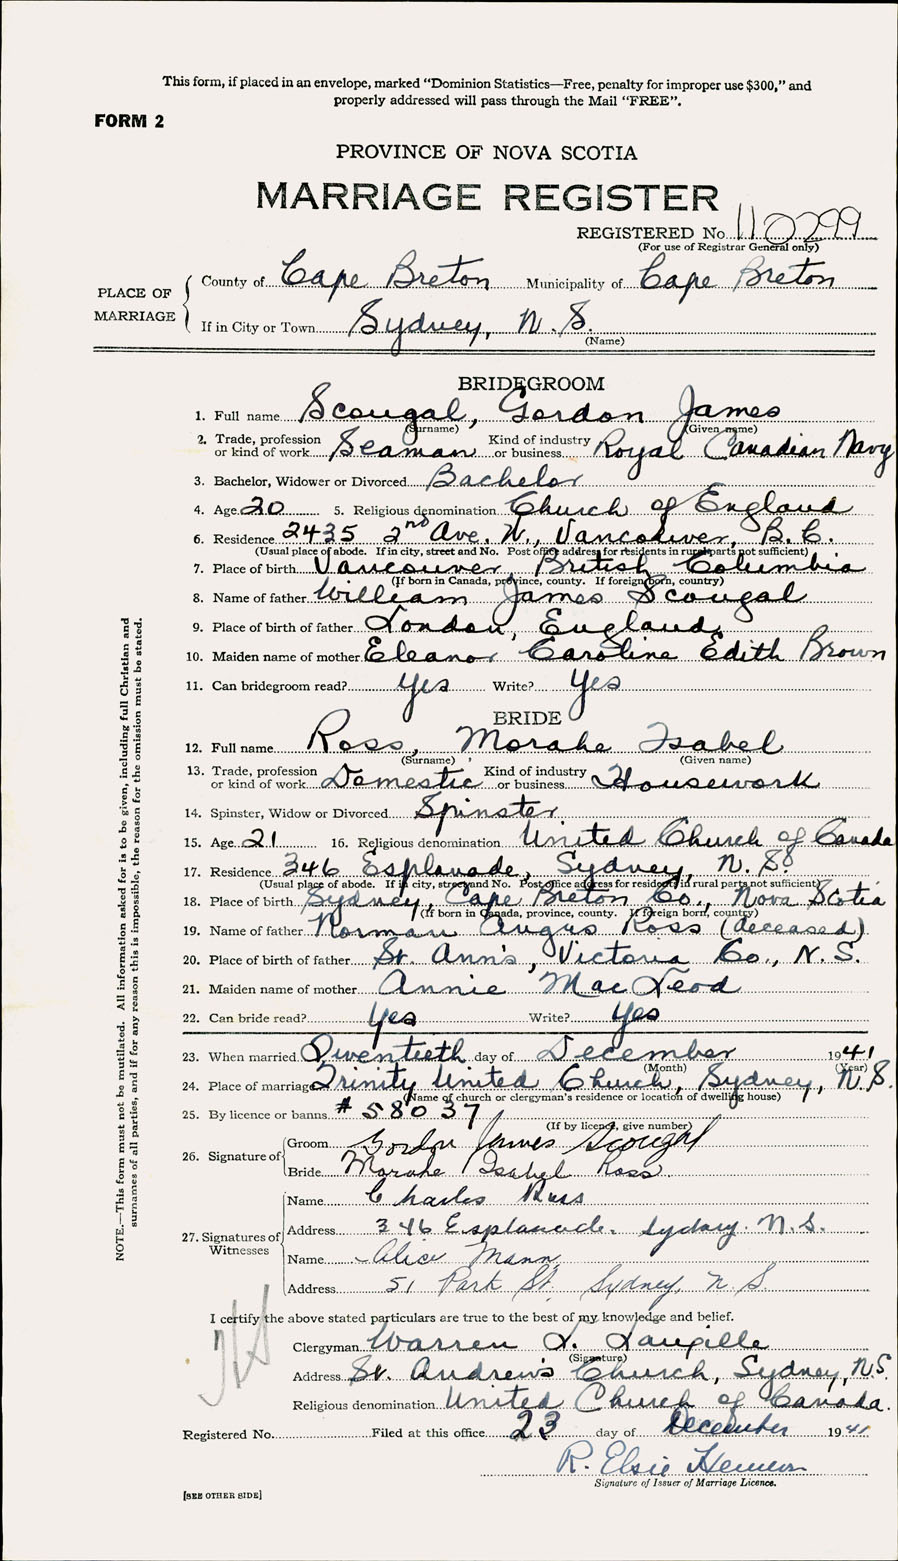 This form, if placed in an envelope, marked "Dominion Statistics—Free, penalty for improper use $300," and
properly addressed will pass through the Mail "FREE".
FORM 2
PROVINCE OF NOVA SCOTIA
MARRIAGE REGISTER
REGISTERED No. 110299
(For use of Registrar General only)
PLACE OF MARRIAGE
County of Cape Breton Municipality of Cape Breton
If in City or Town Sydney, N. S.
(Name)
BRIDEGROOM
1. Full name Scougal, Gordon James
(Surname) (Given name)
2. Trade, profession or kind of work Seaman Kind of industry or business Royal Canadian Navy
3. Bachelor, Widower or Divorced Bachelor
4. Age 20 5. Religious denomination Church of England
6. Residence 2435 2nd Ave. W., Vancouver, B. C.
(Usual place of abode. If in city, street and No. Post office address for residents in rural parts not sufficient)
7. Place of birth Vancouver, British Columbia
(If born in Canada, province, county. If foreign born, country)
8. Name of father William James Scougal
9. Place of birth of father London, England
10. Maiden name of mother Eleanor Caroline Edith Brown
11. Can bridegroom read? Yes Write? Yes
BRIDE
12. Full name Ross, Morahe Isabel
(Surname) (Given name)
13. Trade, profession or kind of work Domestic Kind of industry or business Housework
14. Spinster, Widow or Divorced Spinster
15. Age 21 16. Religious denomination United Church of Canada
17. Residence 346 Esplanade, Sydney, N. S.
(Usual place of abode. If in city, street and No. Post office address for residents in rural parts not sufficient)
18. Place of birth Sydney, Cape Breton Co., Nova Scotia
(If born in Canada, province, county. If foreign born, country)
19. Name of father Norman Angus Ross (deceased)
20. Place of birth of father St. Ann's, Victoria Co., N. S.
21. Maiden name of mother Annie MacLeod
22. Can bride read? Yes Write? Yes
23. When married Twentieth day of December 1941
(Month) (Year)
24. Place of marriage Trinity United Church, Sydney, N. S.
(Name of church or clergyman's residence or location of dwelling house)
25. By licence or banns # 58037
(If by licence, give number)
26. Signature of
Groom Gordon James Scougal
Bride Morahe Isabel Ross
27. Signatures of Witnesses
Name Charles Ross
Address 346 Esplanade. Sydney. N. S.
Name Alice Mann
Address 51 Park St. Sydney, N. S.
I certify the above stated particulars are true to the best of my knowledge and belief.
Clergyman Warren L. Langille
(Signature)
Address St. Andrew's Church, Sydney, N.S.
Religious denomination United Church of Canada.
Registered No. Filed at this office 23 day of December 1941
R. Elsie
Signature of Issuer of Marriage Licence.
[SEE OTHER SIDE]
NOTE.—This form must not be mutilated. All information asked for is to be given, including full Christian and
surnames of all parties, and if for any reason this is impossible, the reason for the omission must be stated.